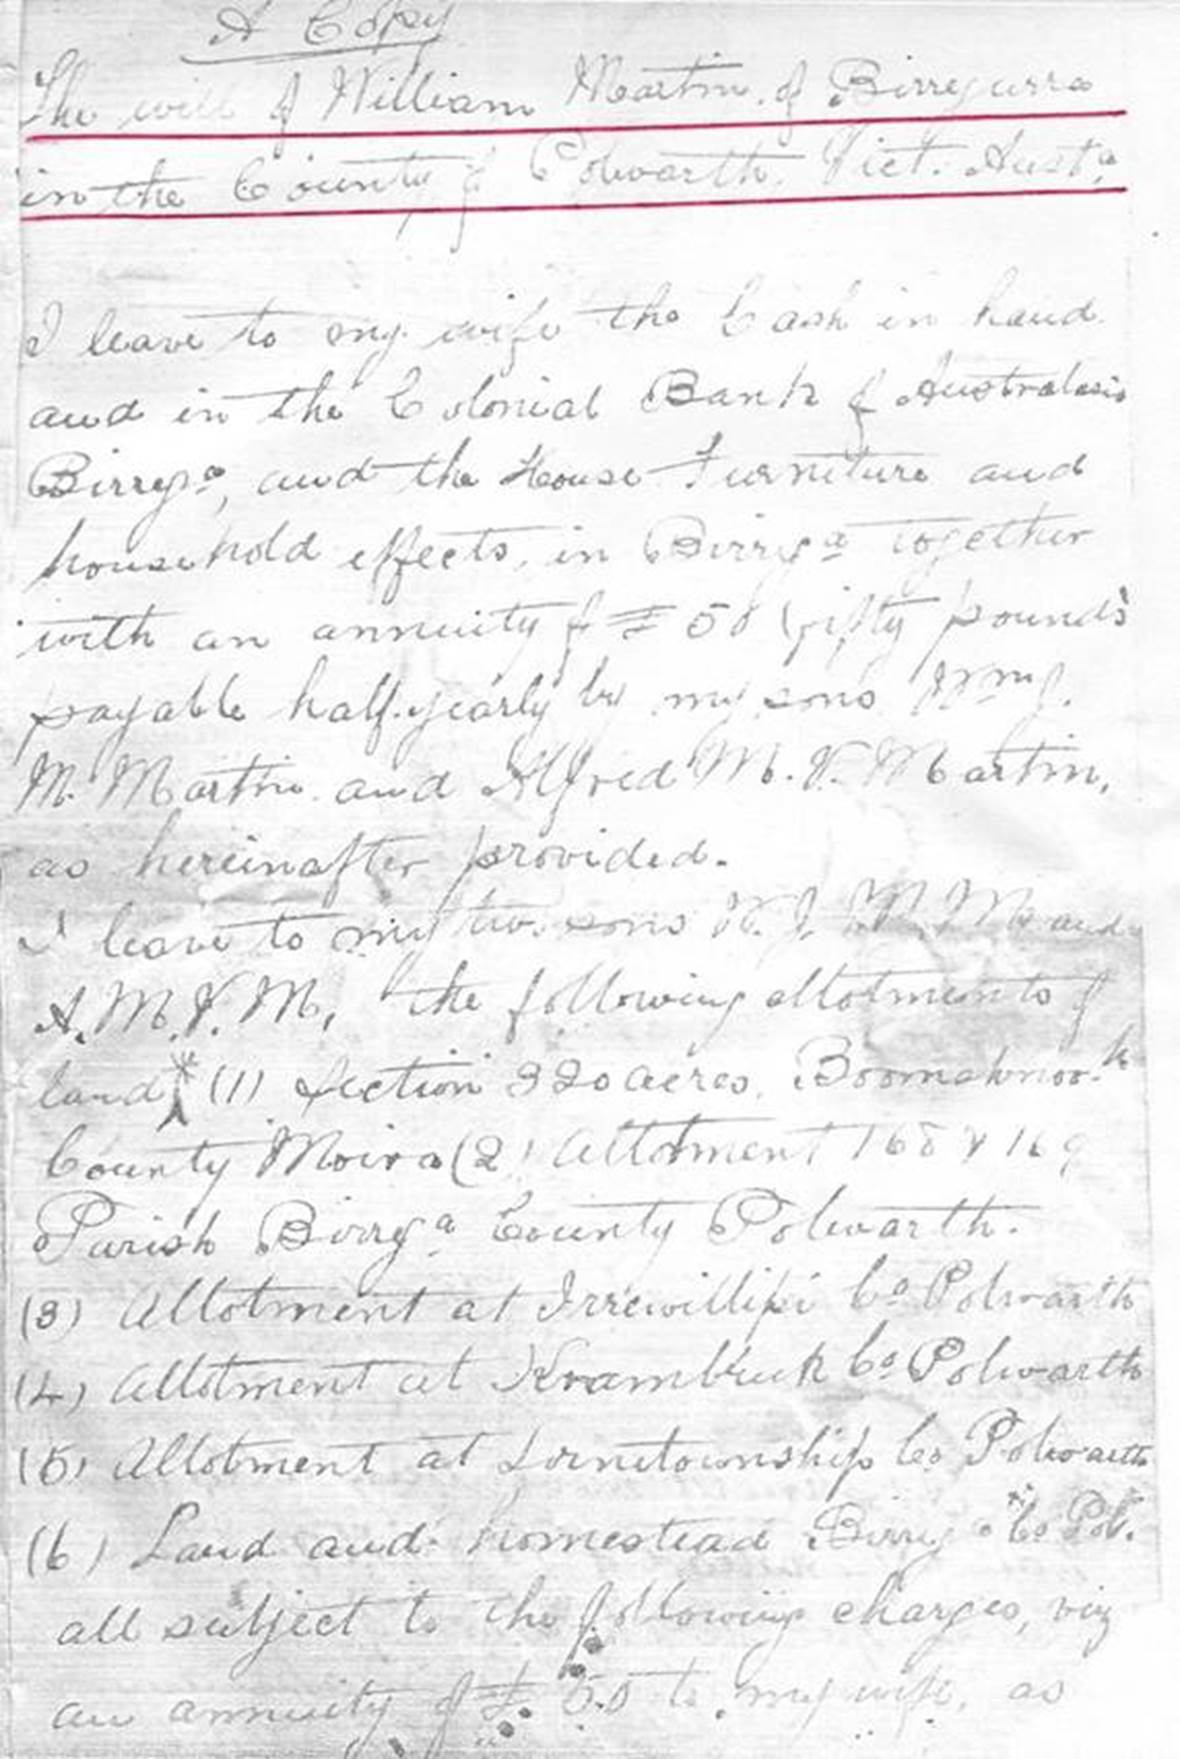 A Copy
The will of William Martin, of Birregurra
in the County of Polwarth, Vict. Austa.
I leave to my wife the Cash in hand
and in the Colonial Bank of Australasia
Birrega, and the House Furniture and
household effects, in Birrega together
with an annuity of £50 (fifty pounds
payable half-yearly by my sons Wm J.
M. Martin and Alfred M. V. Martin,
as hereinafter provided.
I leave to my two sons W. J. M. M. and
A. M. V. M, the following allotments of
land * (1) Section 320 acres, Boomahnoo
County Moira (2) Allotment 168 & 169
Parish Birrga County Polwarth.
(3) Allotment at Irrewillipi Co Polwarth
(4) Allotment at Krambruk Co Polwarth
(5) Allotment at Lornetownship Co Polwarth
(6) Land and homestead Birrga Co Pol.
all subject to the following charges, viz
an annuity of £50 to my wife, as